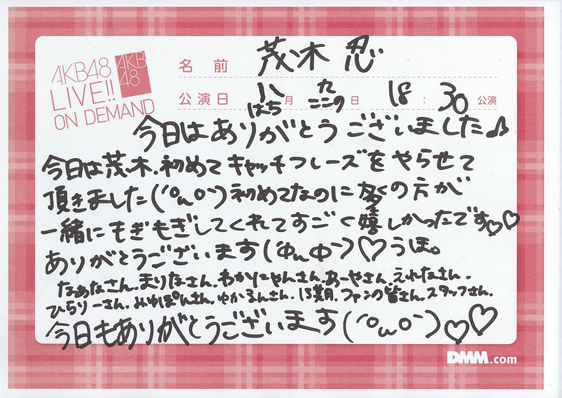 AKB48
LIVE!!
ON DEMAND
AKB
48
名前 茂木 忍
公演日 八 はち 月 九 ここの 日 18:30 公演
今日はありがとうございました♪
今日は茂木、初めてキャッチフレーズをやらせて
頂きました(´ºωº`)初めてなのに多くの方が
一緒にもぎもぎしてくれてすごく嬉しかったです♡♡
ありがとうございます(ФωФ`)♡うほ。
なぁなさん、まりなさん、わかりにゃんさん、あーやさん、えれなさん、
ひらりーさん、みゆぽんさん、ゆかるんさん、13期、ファンの皆さん、スタッフさん、
今日もありがとうございます(´ºωº`)♡♡
DMM.com